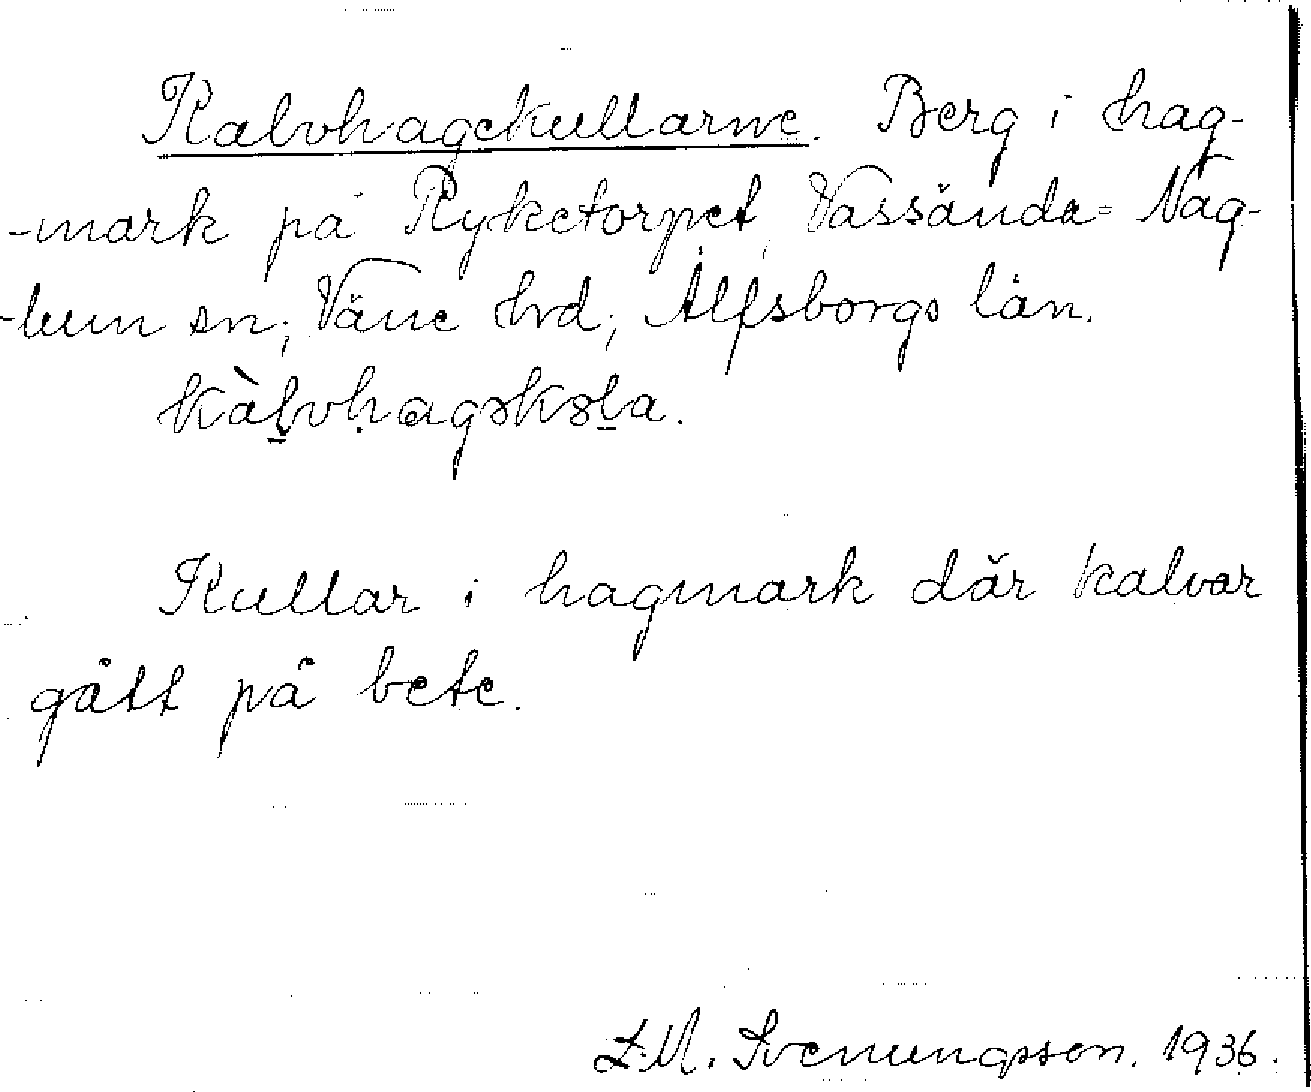 Kalvhagekullarne. Berg i hag-
-mark på Ryketorpet, Vassända-Nag-
-lum sn; Väne hrd; Älfsborgs län.
kàlvhagskola.
Kullar i hagmark där kalvar
gått på bete.
L.M. Svenungsson. 1936.